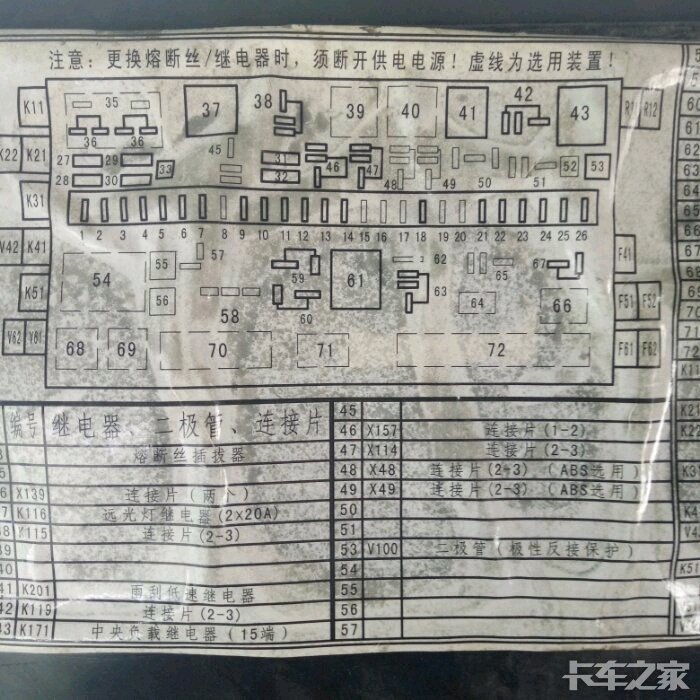 注意：更换熔断丝/继电器时，须断开供电电源！虚线为选用装置！
K11 35 37 38 39 40 41 42 43 R11 R12
36 36
K22 K21 27 29 33 45 31 46 47 48 49 50 51 52 53
28 30 32
K31
1 2 3 4 5 6 7 8 9 10 11 12 13 14 15 16 17 18 19 20 21 22 23 24 25 26
V42 K41 54 55 57 59 61 62 67 F41
K51 56 58 60 63 64 66 F51 F52
V62 V61 68 69 70 71 72 F61 F62
编号 继电器、二极管、连接片
熔断丝插拔器
X139 连接片（两个）
K116 远光灯继电器(2×20A)
X115 连接片(2-3)
39
40
41 K201 雨刮低速继电器
42 K119 连接片(2-3)
43 K171 中央负载继电器（15端）
45
46 X157 连接片(1-2)
47 X114 连接片(2-3)
48 X48 连接片(2-3)（ABS选用）
49 X49 连接片(2-3)（ABS选用）
50
51
53 V100 二极管（极性反接保护）
54
55
56
57
60
61
62
63
64
65
66
67
68
69
70
71
72
K11
K22
K51
卡车之家